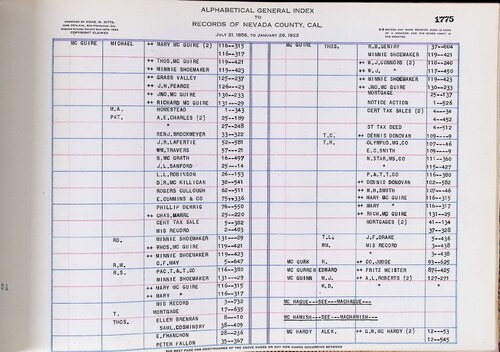 ALPHABETICAL GENERAL INDEX
TO
RECORDS OF NEVADA COUNTY, CAL.
1775
JULY 21, 1856, TO JANUARY 26, 1922
COPYRIGHT CLAIMED
MC GUIRE MICHAEL ++ MARY MC GUIRE (2) 116--315
" 116--317
++ THOS. MC GUIRE 119--421
++ MINNIE SHOEMAKER 119--423
++ GRASS VALLEY 125--237
++ J.H. PEARCE 126--23
++ JNO. MC GUIRE 130--233
++ RICHARD MC GUIRE 131--29
M.A. HOMESTEAD 1--343
PAT. A.E. CHARLES (2) 25--189
" 27--248
BENJ. BROCKMEYER 33--322
J.R. LAFERTIE 52--581
WM. TRAVERS 57--21
B. MC GRATH 16--497
J.L. SANFORD 25--14
L.L. ROBINSON 26--153
D.R. MC KILLIGAN 38--541
ROGERS CULLOUGH 62--511
E. CUMMINS & CO 75--336
PHILLIP DERRIG 76--550
++ CHAS. MARRE 25--220
CERT TAX SALE 5--382
MIS RECORD 2--403
RD. MINNIE SHOEMAKER 131--29
++ THOS. MC GUIRE 119--421
++ MINNIE SHOEMAKER 119--423
R.M. C.F. MAY 5--647
R.S. PAC. T. & T. CO 116--380
MINNIE SHOEMAKER 131--29
++ MARY MC GUIRE 116--315
++ MARY " 116--317
MIS RECORD 3--732
T. MORTGAGE 17--635
THOS. ELLEN BRENNAN 8--10
SAUL GOSWINSKY 38--409
E. FRANCHON 28--236
PETER FALLON 35--367
MC GUIRE THOS. R.B. GENTRY 37--604
++ MINNIE SHOEMAKER 119--421
++ W.J. CONNORS (2) 118--240
++ W.J. " 117--450
++ MINNIE SHOEMAKER 119--423
++ JNO. MC GUIRE 130--233
MORTGAGE 25--137
NOTICE ACTION 1--526
CERT TAX SALES (2) 4--34
4--452
ST TAX DEED 4--512
T.C. ++ DENNIS DONOVAN 109--9
T.H. OLYMPUS MG CO 107--46
E.C. SMITH 109--9
N. STAR MG CO 111--360
115--427
P. & T.T. CO 116--380
++ DENNIS DONOVAN 102--582
++ W.H. SMITH 107--46
++ MARY MC GUIRE 116--315
++ MARY " 116--317
++ RICH. MC GUIRE 131--29
MORTGAGES (2) 41--134
37--328
T.L. J.F. DRAKE 5--436
WM. MIS RECORD 3--438
" 3--438
MC GURK H. ++ CO. JUDGE 93--625
MC GURREN EDWARD ++ FRITZ MEISTER 87--425
MC GUINN W.J. ++ A.L. ROBERTS (2) 127--271
W.D. "
MC HAGUE---SEE---MACHAGUE---
MC HAMISH---SEE---MACHAMISH---
MC HARDY ALEX. ++ G.W. MC HARDY (2) 12--53
12--545